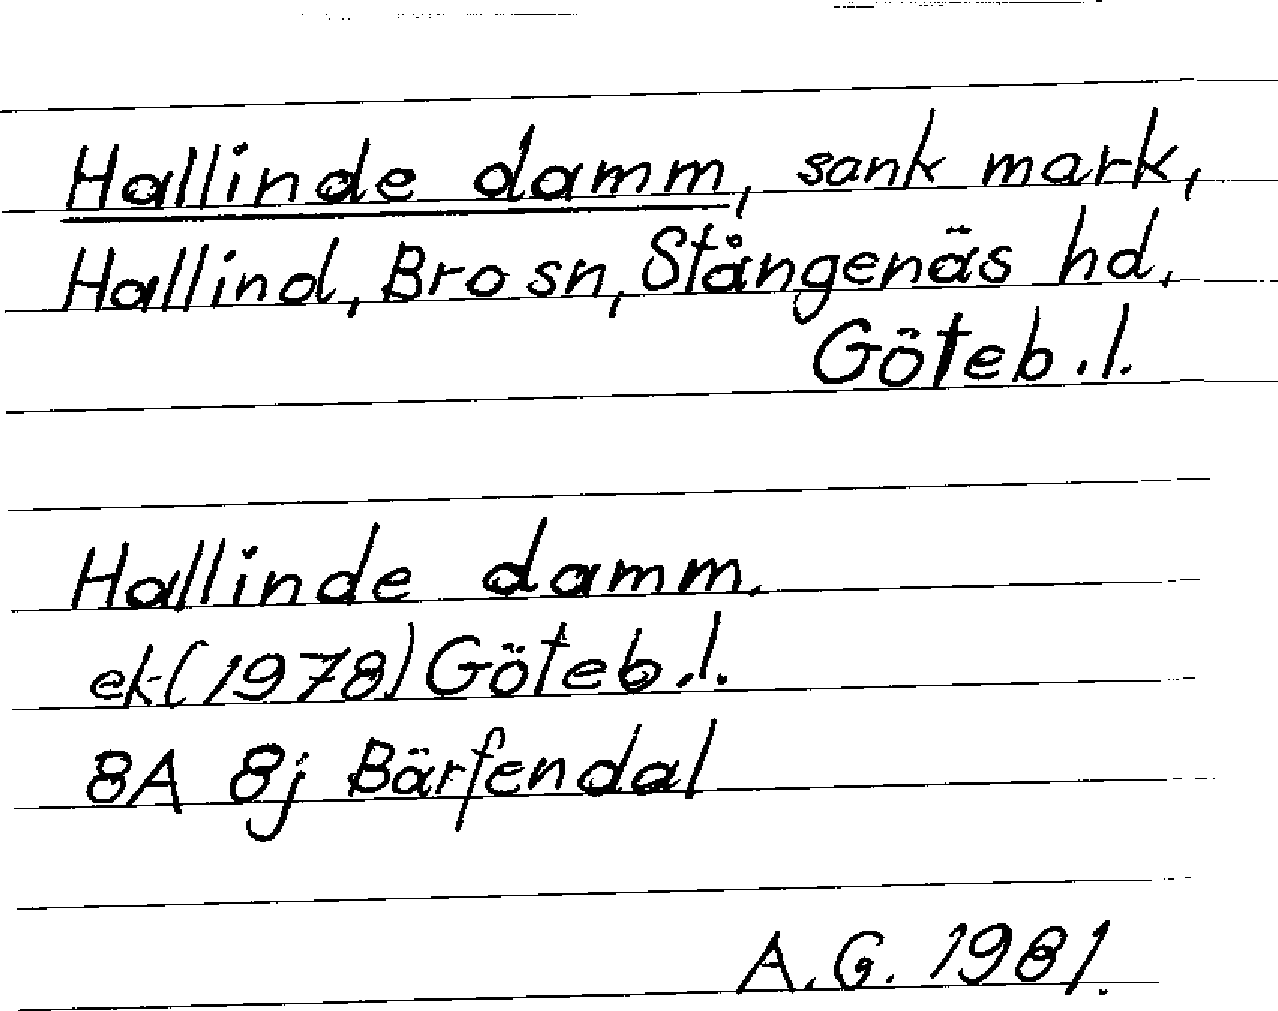 Hallinde damm, sank mark,
Hallind, Bro sn, Stångenäs hd,
Göteb.l.
Hallinde damm.
ek(1978) Göteb.l.
8A 8j Bärfendal
A.G. 1981.